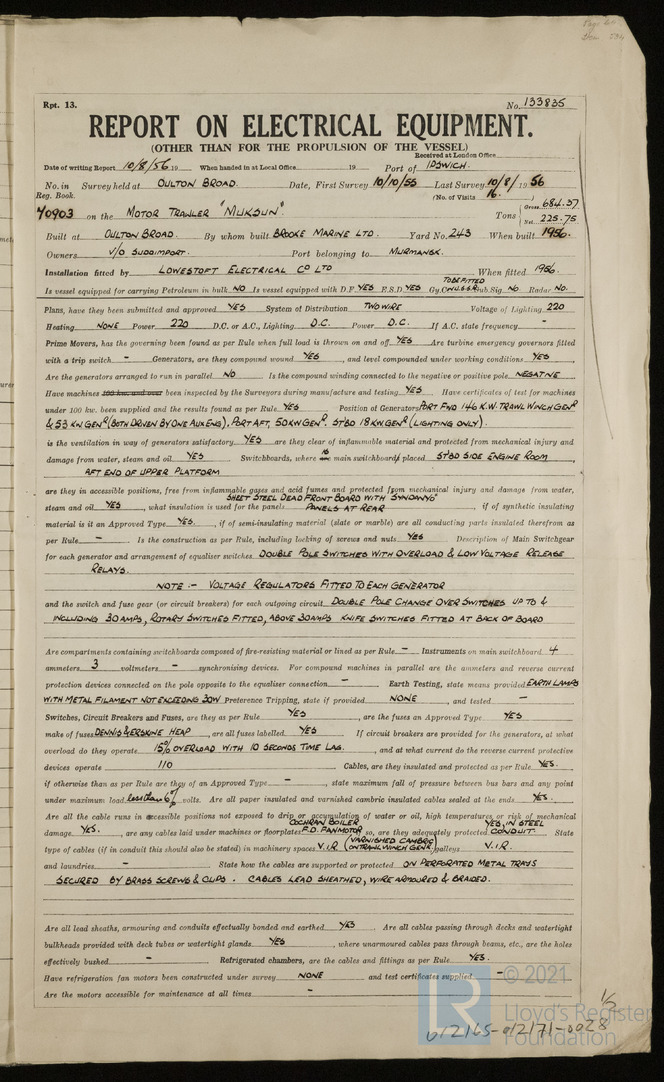 Rpt. 13. No. 133835
REPORT ON ELECTRICAL EQUIPMENT.
(OTHER THAN FOR THE PROPULSION OF THE VESSEL)
Received at London Office
Date of writing Report 10/8/56 19 When handed in at Local Office 19 Port of IPSWICH.
No. in Survey held at OULTON BROAD. Date, First Survey 10/10/55 Last Survey 10/8/ 1956
Reg. Book. (No. of Visits 16.
40903 on the MOTOR TRAWLER "MUKSUN". Tons Gross 684.37
Net 225.75
Built at OULTON BROAD. By whom built BROOKE MARINE LTD. Yard No. 243 When built 1956.
Owners V/O SUDOIMPORT. Port belonging to MURMANSK.
Installation fitted by LOWESTOFT ELECTRICAL CO LTD When fitted 1956.
TO BE FITTED
Is vessel equipped for carrying Petroleum in bulk NO Is vessel equipped with D.F. YES E.S.D. YES Gy.C. IN U.S.S.R. Sub.Sig. NO Radar NO.
Plans, have they been submitted and approved YES System of Distribution TWO WIRE Voltage of Lighting 220
Heating NONE Power 220 D.C. or A.C., Lighting D.C. Power D.C. If A.C. state frequency -
Prime Movers, has the governing been found as per Rule when full load is thrown on and off YES Are turbine emergency governors fitted
with a trip switch - Generators, are they compound wound YES, and level compounded under working conditions YES,
Are the generators arranged to run in parallel NO Is the compound winding connected to the negative or positive pole NEGATIVE
Have machines 100 kw. and over been inspected by the Surveyors during manufacture and testing YES Have certificates of test for machines
under 100 kw. been supplied and the results found as per Rule YES Position of Generators PORT FWD 146 K.W. TRAWL WINCH GENR
& 53 KW GENR (BOTH DRIVEN BY ONE AUX ENG), PORT AFT, 50KW GENR. STBD 18KW GENR (LIGHTING ONLY).
is the ventilation in way of generators satisfactory YES are they clear of inflammable material and protected from mechanical injury and
damage from water, steam and oil YES Switchboards, where is main switchboard placed STBD SIDE ENGINE ROOM,
AFT END OF UPPER PLATFORM
are they in accessible positions, free from inflammable gases and acid fumes and protected from mechanical injury and damage from water,
SHEET STEEL DEAD FRONT BOARD WITH SYNDANYO
steam and oil YES, what insulation is used for the panels PANELS AT REAR, if of synthetic insulating
material is it an Approved Type YES, if of semi-insulating material (slate or marble) are all conducting parts insulated therefrom as
per Rule - Is the construction as per Rule, including locking of screws and nuts YES Description of Main Switchgear
for each generator and arrangement of equaliser switches DOUBLE POLE SWITCHES WITH OVERLOAD & LOW VOLTAGE RELEASE
RELAYS.
NOTE :- VOLTAGE REGULATORS FITTED TO EACH GENERATOR
and the switch and fuse gear (or circuit breakers) for each outgoing circuit DOUBLE POLE CHANGE OVER SWITCHES UP TO &
INCLUDING 30 AMPS, ROTARY SWITCHES FITTED, ABOVE 30 AMPS KNIFE SWITCHES FITTED AT BACK OF BOARD
Are compartments containing switchboards composed of fire-resisting material or lined as per Rule - Instruments on main switchboard 4
ammeters 3 voltmeters - synchronising devices. For compound machines in parallel are the ammeters and reverse current
protection devices connected on the pole opposite to the equaliser connection - Earth Testing, state means provided EARTH LAMPS
WITH METAL FILAMENT NOT EXCEEDING 30W Preference Tripping, state if provided NONE, and tested -
Switches, Circuit Breakers and Fuses, are they as per Rule YES, are the fuses an Approved Type YES
make of fuses DENNIS & ERSKINE HEAP, are all fuses labelled YES If circuit breakers are provided for the generators, at what
overload do they operate 15% OVERLOAD WITH 10 SECONDS TIME LAG., and at what current do the reverse current protective
devices operate 110 Cables, are they insulated and protected as per Rule YES.
if otherwise than as per Rule are they of an Approved Type -, state maximum fall of pressure between bus bars and any point
under maximum load less than 6% volts. Are all paper insulated and varnished cambric insulated cables sealed at the ends YES.
Are all the cable runs in accessible positions not exposed to drip or accumulation of water or oil, high temperatures or risk of mechanical
COCHRAN BOILER YES, IN STEEL
damage. YES., are any cables laid under machines or floorplates F.D. FAN MOTOR so, are they adequately protected CONDUIT. State
(VARNISHED CAMBRIC
type of cables (if in conduit this should also be stated) in machinery spaces V.I.R ON TRAWL WINCH GENR.) galleys V.I.R.
and laundries - State how the cables are supported or protected ON PERFORATED METAL TRAYS
SECURED BY BRASS SCREWS & CLIPS. CABLES LEAD SHEATHED, WIRE ARMOURED & BRAIDED.
Are all lead sheaths, armouring and conduits effectually bonded and earthed YES Are all cables passing through decks and watertight
bulkheads provided with deck tubes or watertight glands YES, where unarmoured cables pass through beams, etc., are the holes
effectively bushed - Refrigerated chambers, are the cables and fittings as per Rule YES.
Have refrigeration fan motors been constructed under survey NONE and test certificates supplied -
Are the motors accessible for maintenance at all times -
© 2021
Lloyd's Register
Foundation
1/2
012165-012171-0028